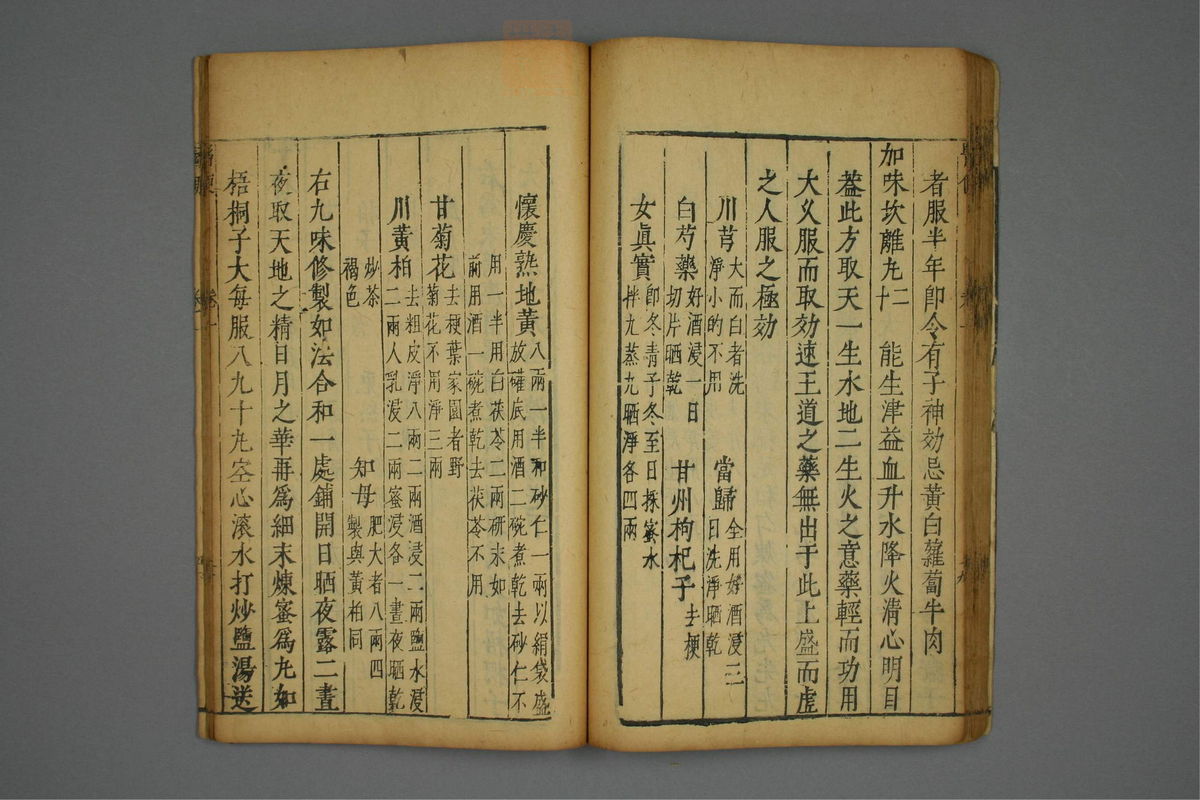 者服半年卽令有子神効忌黃白蘿蔔牛肉
加味坎離丸二十 能生津益血升水降火清心明目
葢此方取天一生水地二生火之意藥輕而功用
大乆服而取効速王道之藥無出于此上盛而虛
之人服之極効
川芎大而白者洗淨小的不用 當歸全用好酒浸三日洗淨晒乾
白芍藥好酒浸一日切片晒乾 甘州枸杞子去梗
女眞實卽冬青子冬至日採蜜水拌九蒸九晒淨各四兩
懷慶熟地黃八兩一半和砂仁一兩以絹袋盛放礶底用酒二碗煮乾去砂仁不
用一半用白茯苓二兩研末如前用酒一碗煮乾去茯苓不用
甘菊花去梗葉家園者野菊花不用淨三兩
川黃柏去粗皮淨八兩二兩酒浸二兩鹽水浸二兩人乳浸二兩蜜浸各一晝夜晒乾
炒茶褐色 知母肥大者八兩四製與黃柏同
右九味修製如法合和一處鋪開日晒夜露二晝
夜取天地之精日月之華再爲細末煉蜜爲丸如
梧桐子大每服八九十丸空心滚水打炒鹽湯送